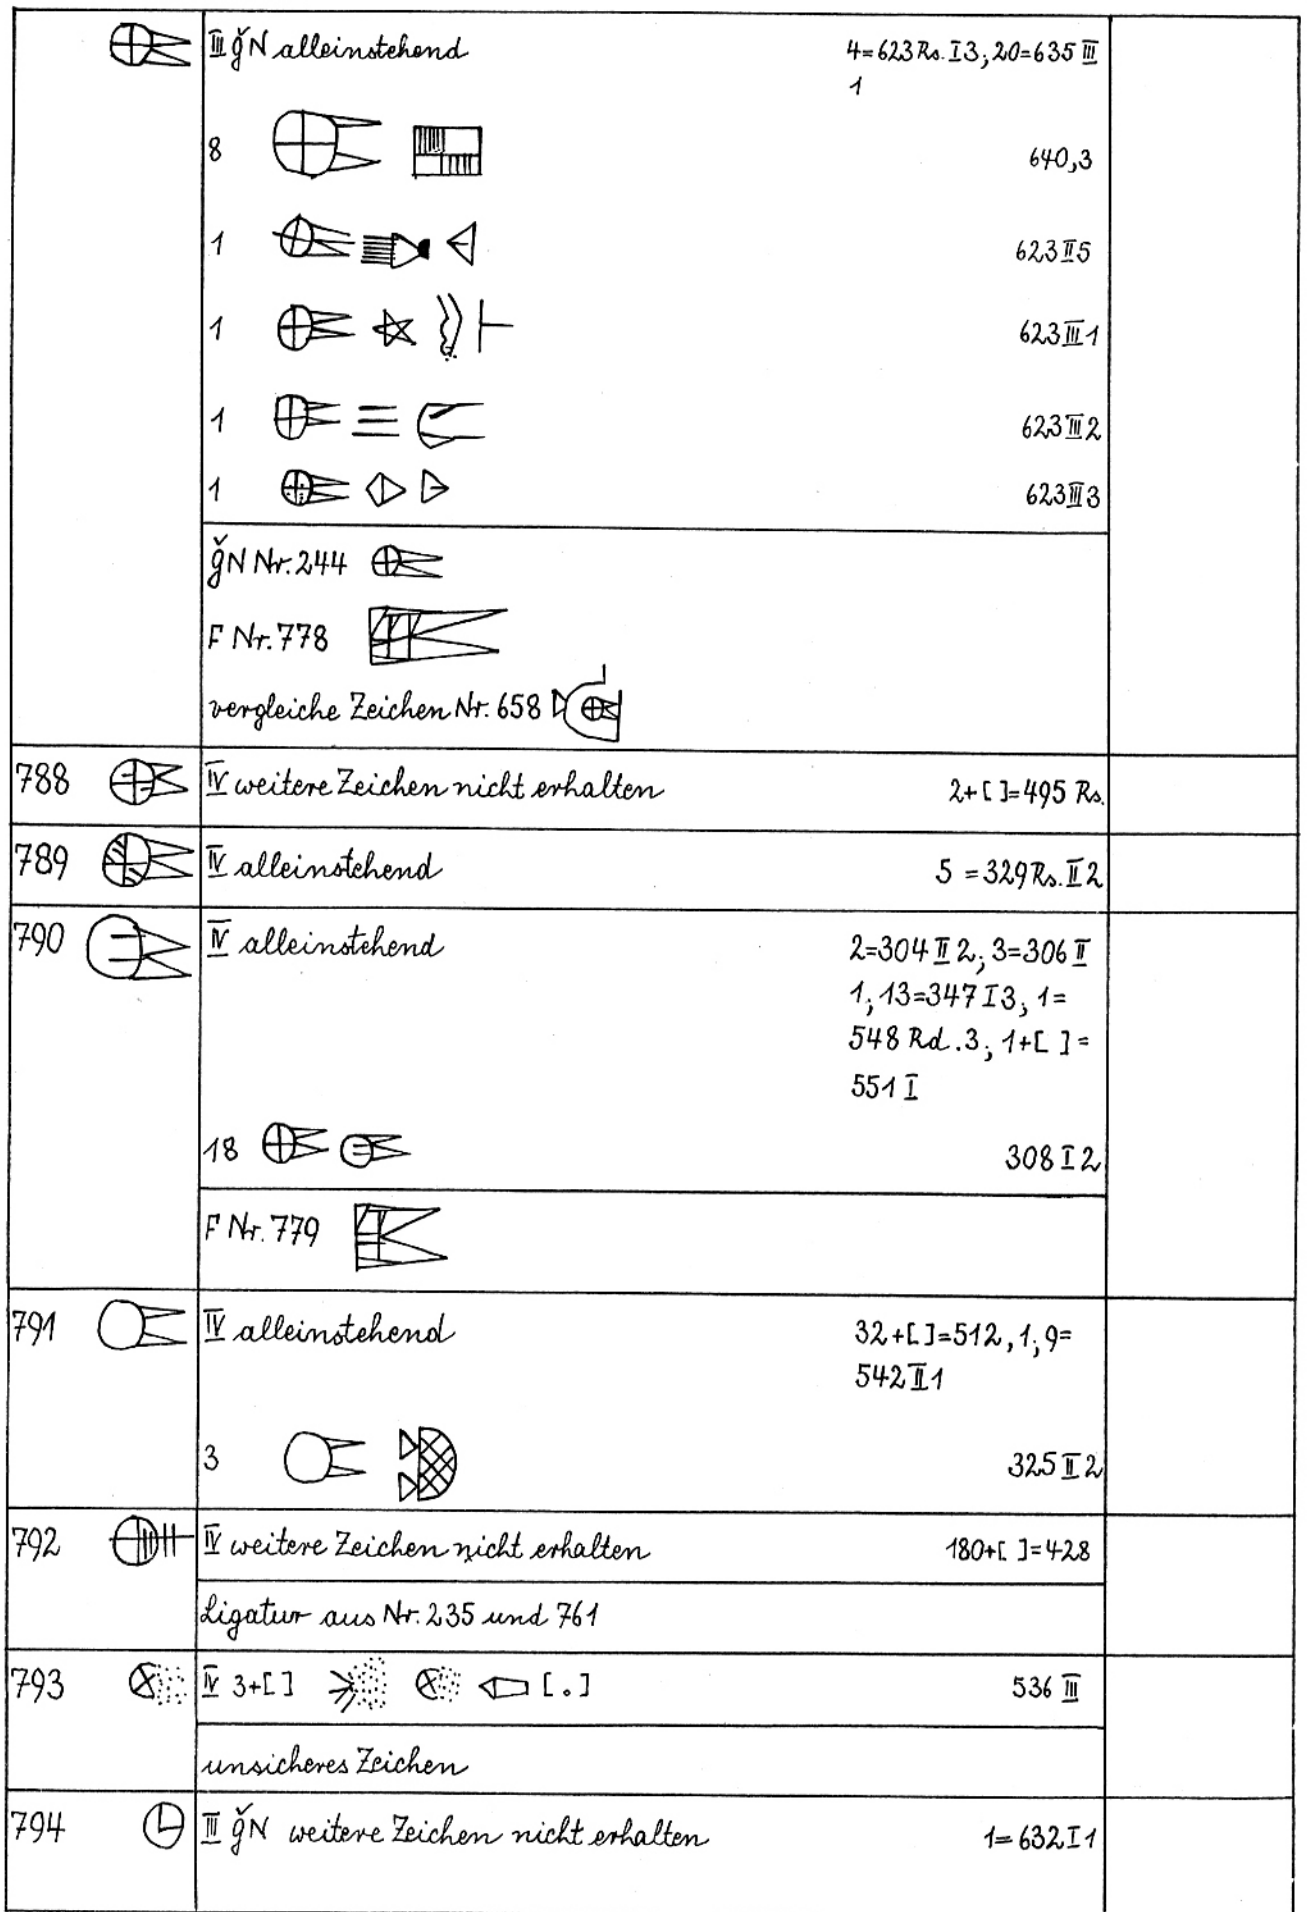 III ǧN alleinstehend 4=623 Rs. I 3; 20=635 III
1
8 640,3
1 623 II 5
1 623 III 1
1 623 III 2
1 623 III 3
ǧN Nr. 244
F Nr. 778
vergleiche Zeichen Nr. 658
788 IV weitere Zeichen nicht erhalten 2+[ ]=495 Rs.
789 IV alleinstehend 5 =329 Rs. II 2
790 IV alleinstehend 2=304 II 2; 3=306 II
1; 13=347 I 3; 1=
548 Rd. 3; 1+[ ]=
551 I
18 308 I 2
F Nr. 779
791 IV alleinstehend 32+[ ]=512,1; 9=
542 II 1
3 325 II 2
792 IV weitere Zeichen nicht erhalten 180+[ ]=428
Ligatur aus Nr. 235 und 761
793 IV 3+[ ] [.] 536 III
unsicheres Zeichen
794 III ǧN weitere Zeichen nicht erhalten 1=632 I 1